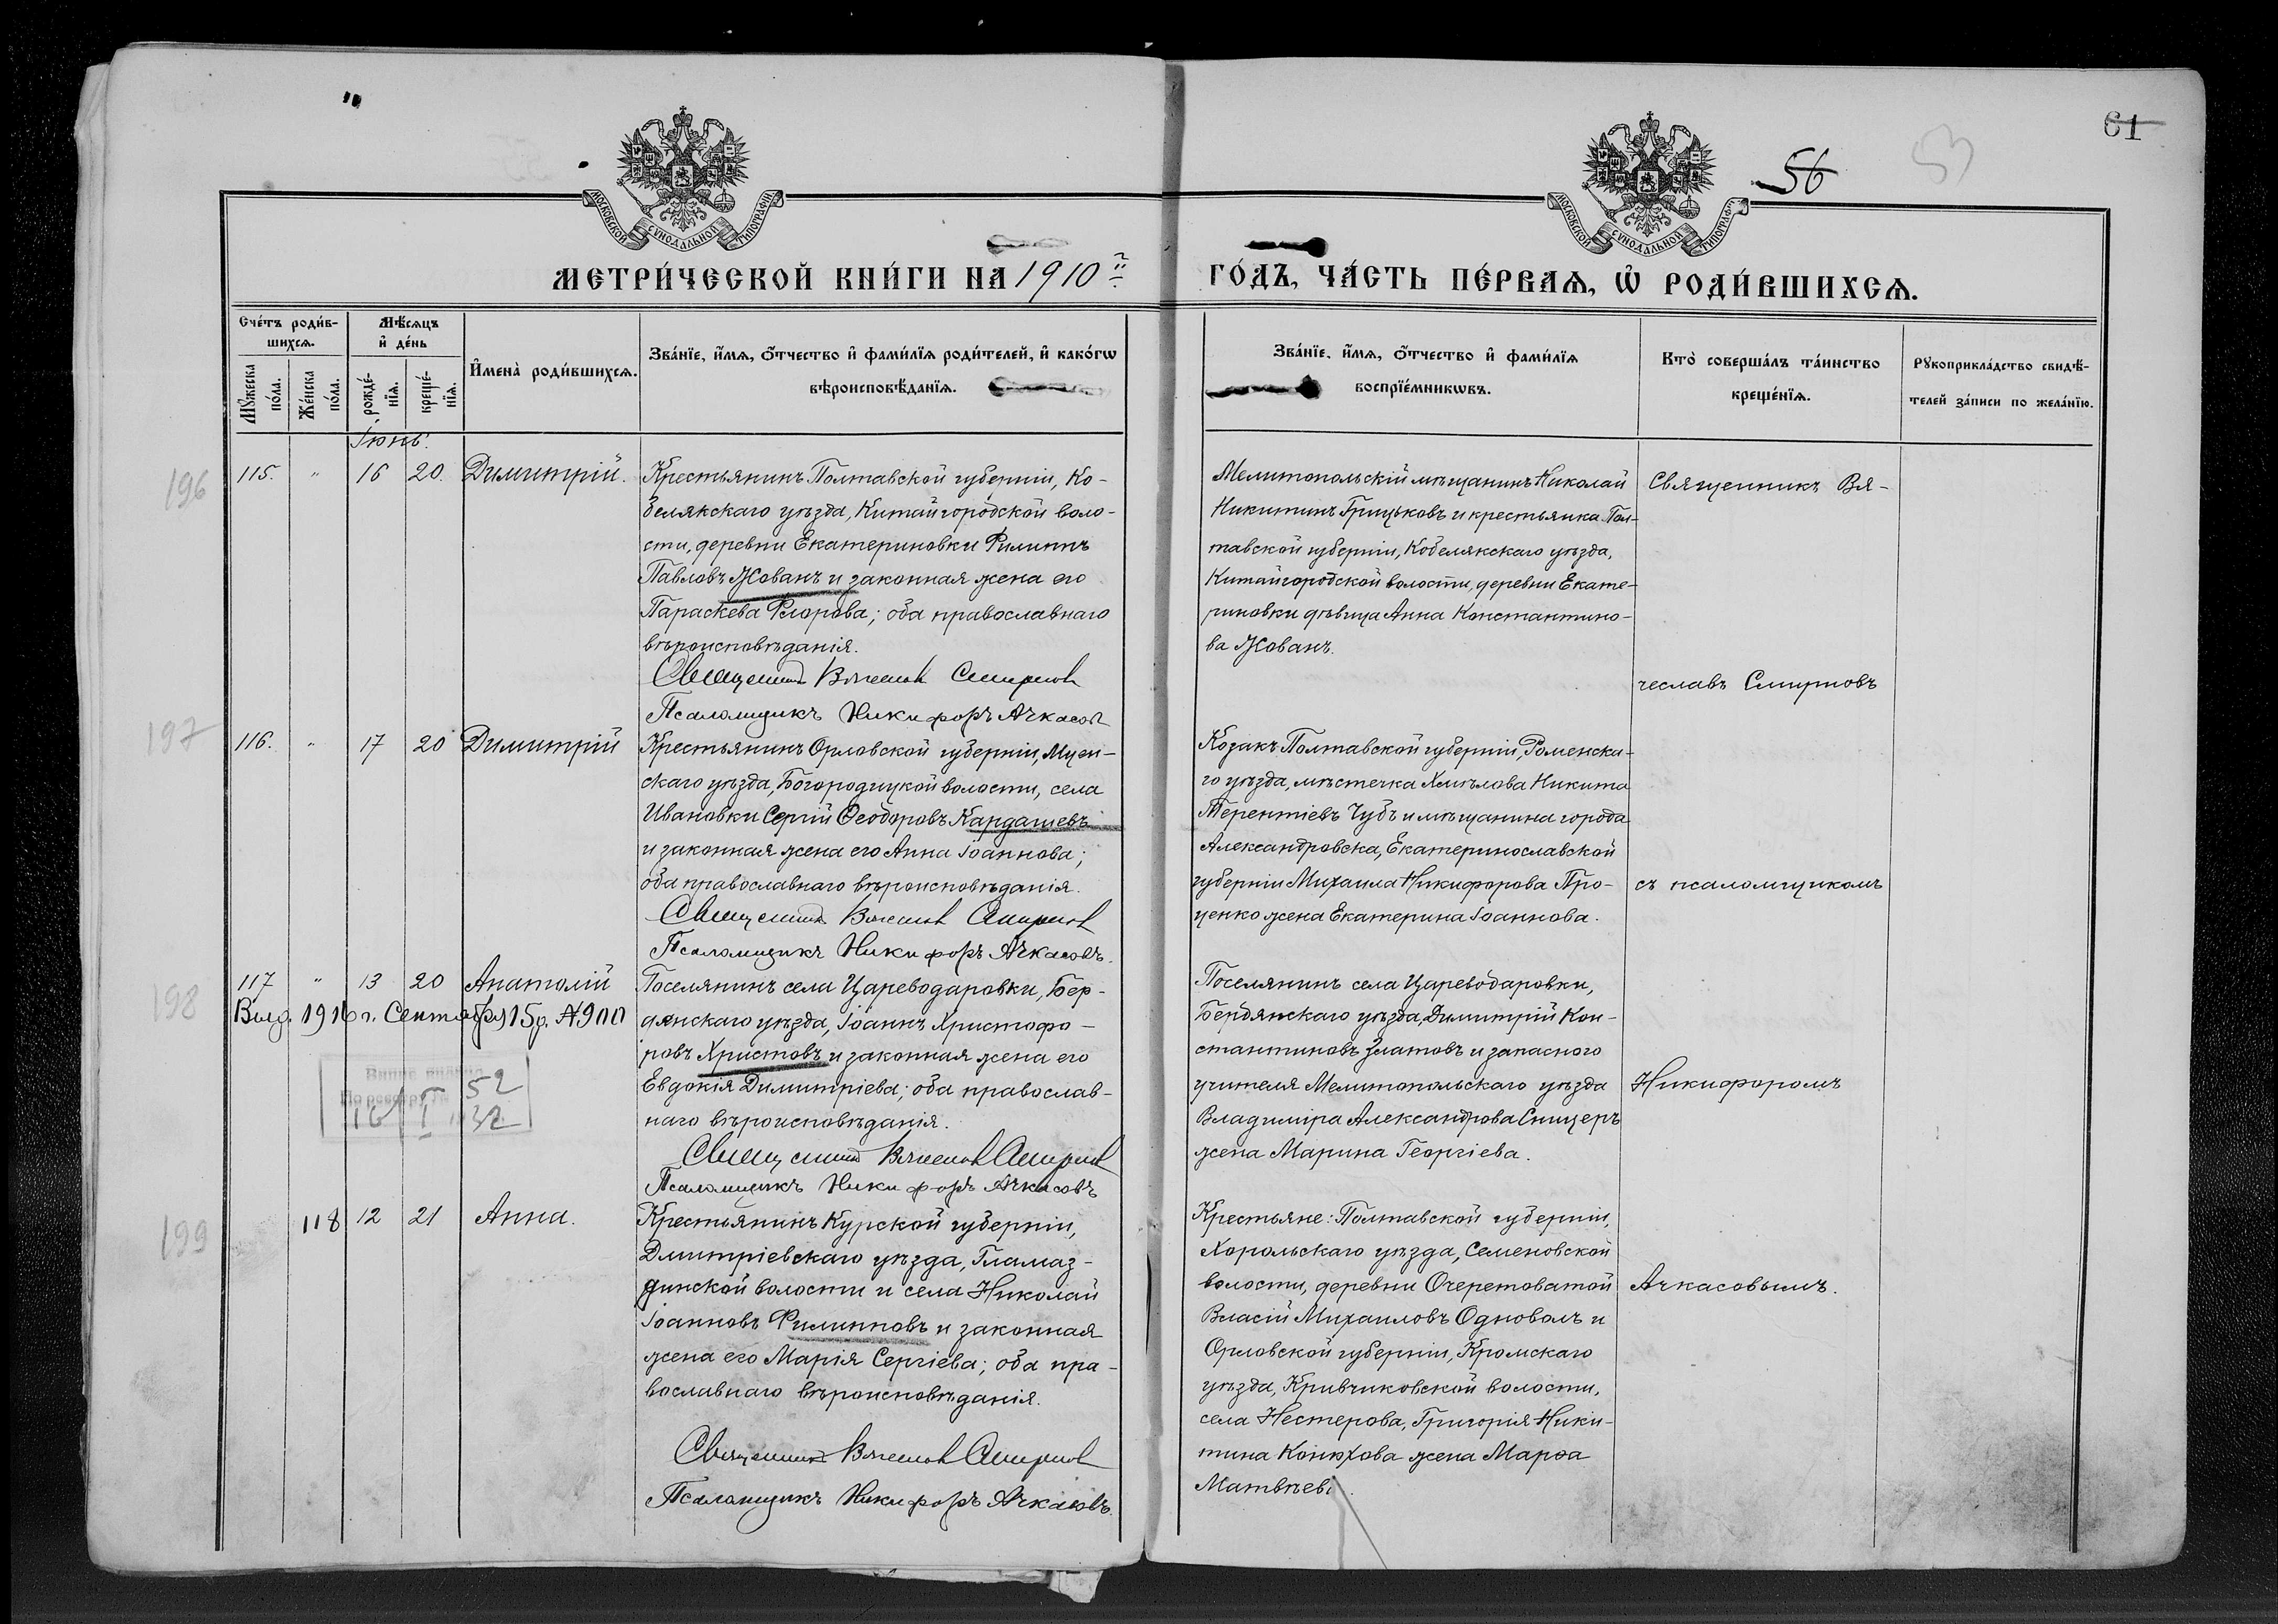 61
56
53
МОСКОВСКОЙ СѴНОДАЛЬНОЙ ТИПОГРАФІИ
МОСКОВСКОЙ СѴНОДАЛЬНОЙ ТИПОГРАФІИ
МЕТРИ́ЧЕСКОЙ КНИ́ГИ НА 1910й ГО́ДЪ, ЧА́СТЬ ПЕ́РВАѦ, Ѡ҆ РОДИ́ВШИХСѦ.
Сче́тъ роди́в-
шихсѧ.
Мꙋ́жеска по́ла.
Же́нска по́ла.
Мѣ́сѧцъ
и҆ де́нь
рожде́-
нїѧ.
креще́-
нїѧ.
И҆мена̀ роди́вшихсѧ.
Зва́нїе, и҆́мѧ, ѻ҆́тчество и҆ фами́лїѧ роди́телей, и҆ како́гѡ
вѣроисповѣ́данїѧ.
Зва́нїе, и҆́мѧ, ѻ҆́тчество и҆ фами́лїѧ
воспрїе́мникѡвъ.
Кто̀ соверша́лъ та́инство
креще́нїѧ.
Рꙋкоприкла́дство свидѣ́-
телей за́писи по жела́нїю.
Іюнь.
196
115. " 16 20. Димитрій.
Крестьянинъ Полтавской губерніи, Ко-
белякскаго уѣзда, Китайгородской воло-
сти, деревни Екатериновки Филиппъ
Павловъ Жованъ и законная жена его
Параскева Флорова; оба православнаго
вѣроисповѣданія.
Священникъ Вячеславъ Смирновъ
Псаломщикъ Никифоръ Ачкасовъ
Мелитопольскій мѣщанинъ Николай
Никитинъ Грицьковъ и крестьянка Пол-
тавской губерніи, Кобелякскаго уѣзда,
Китайгородской волости, деревни Екате-
риновки дѣвица Анна Константино-
ва Жованъ.
Священникъ Вя-
чеславъ Смирновъ
197
116. " 17 20 Димитрій
Крестьянинъ Орловской губерніи, Мцен-
скаго уѣзда, Богородицкой волости, села
Ивановки Сергій Ѳеодоровъ Кардашевъ
и законная жена его Анна Іоаннова;
оба православнаго вѣроисповѣданія.
Священникъ Вячеславъ Смирновъ
Псаломщикъ Никифоръ Ачкасовъ.
Козакъ Полтавской губерніи, Роменска-
го уѣзда, мѣстечка Хмѣлова Никита
Терентіевъ Чубъ и мѣщанина города
Александровска, Екатеринославской
губерніи Михаила Никифорова Про-
ценко жена Екатерина Іоаннова.
съ псаломщикомъ
198
117 " 13 20 Анатолій
Выд. 1916 г. Сентября 15 д. № 900
52
16 I 32
Поселянинъ села Цареводаровки, Бер-
дянскаго уѣзда, Іоаннъ Христофо-
ровъ Христовъ и законная жена его
Евдокія Димитріева; оба православ-
наго вѣроисповѣданія.
Священникъ Вячеславъ Смирновъ
Псаломщикъ Никифоръ Ачкасовъ
Поселянинъ села Цареводаровки,
Бердянскаго уѣзда, Димитрій Кон-
стантиновъ Златовъ и запаснаго
учителя Мелитопольскаго уѣзда
Владиміра Александрова Спицеръ
жена Марина Георгіева.
Никифоромъ
199
118 12 21 Анна.
Крестьянинъ Курской губерніи,
Дмитріевскаго уѣзда, Гламаз-
динской волости и села Николай
Іоанновъ Филипповъ и законная
жена его Марія Сергіева; оба пра-
вославнаго вѣроисповѣданія.
Священникъ Вячеславъ Смирновъ
Псаломщикъ Никифоръ Ачкасовъ.
Крестьяне: Полтавской губерніи,
Хорольскаго уѣзда, Семеновской
волости, деревни Очеретоватой
Власій Михаиловъ Одноволъ и
Орловской губерніи, Кромскаго
уѣзда, Кривчиковской волости,
села Нестерова, Григорія Ники-
тина Конюхова жена Марѳа
Матвѣева.
Ачкасовымъ.